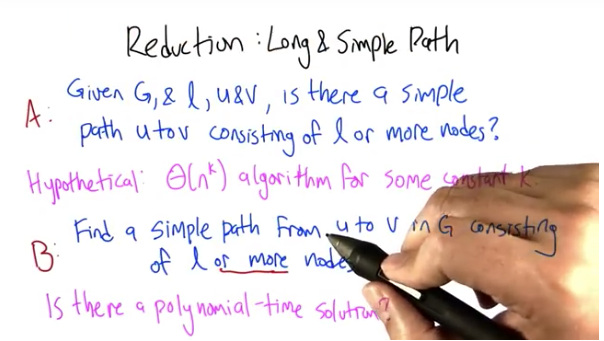 Reduction: Long & Simple Path
A: Given G, & l, u & v, is there a simple
path u to v consisting of l or more nodes?
Hypothetical: Θ(n^k) algorithm for some constant k.
B: Find a simple path from u to v in G consisting
of l or more nodes
Is there a polynomial-time solution?